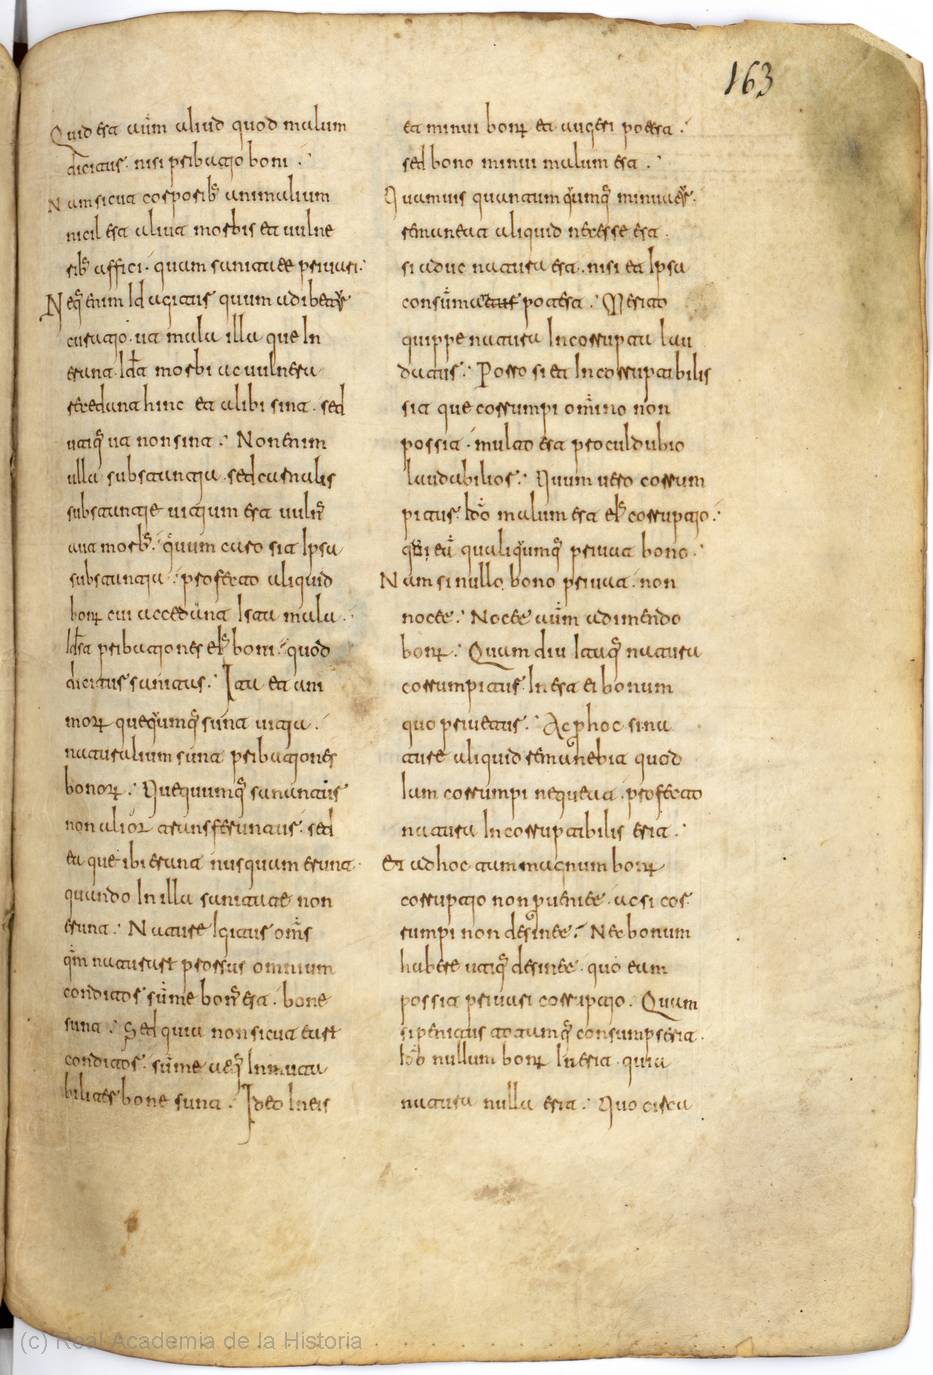 163
Quid est aũm aliud quod malum
dicitur. nisi pribatio boni .
Nam sicut corporibꝫ animalium
nicil est aliut morbis et uulne
ribꝫ affici. quam sanitate priuari.
Neqꝫ enim id agitur quum adibetur
curatio. ut mala illa que in
erant. idẽ morbi ac uulnera
recedant hinc et alibi sint. sed
utiqꝫ ut non sint. Non enim
ulla substantia. sed carnalis
substantie uitium est uulnꝰ
aut morbꝰ. quum caro sit ipsa
substantia. profecto aliquid
bonũ cui accedunt ista mala.
idẽ pribationes eiꝰ boni. quod
dicitur sanitas. Ita et ani
morũ quequmqꝫ sunt uitia.
naturalium sunt pribationes
bonorũ. Quequumqꝫ sanantur
non aliorũ transferuntur. sed
ea que ibi erant nusquam erunt.
quando in illa sanitate non
erunt. Nature igitur om̃s
qm̃ naturarum prorsus omnium
conditor sum̃e bonꝰ est. bone
sunt. Sed quia non sicut earum
conditor. sum̃e atqꝫ inmuta
biliter bone sunt. Ideo in eis
et minui bonũ et augeri potest.
sed bono minui malum est .
Quamuis quantumqumqꝫ minuatur.
remaneat aliquid necesse est.
si aduc natura est. nisi et ipsa
consum̃atur potest. Merito
quippe natura incorrupta lau
datur. Porro si et incorruptibilis
sit que corrumpi om̃ino non
possit. multo est proculdubio
laudabilior. Quum uero corrum
pitur. ido malum est eiꝰ corruptio.
qualiqumqꝫ priuat bono.
Nam si nullo bono priuat. non
nocet. Nocet aũm adimendo
bonũ. Quamdiu itaqꝫ natura
corrumpitur. inest ei bonum
quo priuetur. Ac p hoc si na
ture aliquid remanebit quod
iam corrumpi nequeat. profecto
natura incorruptibilis erit.
Et ad hoc tam magnum bonũ
corruptio non pueniet. at si cor
rumpi non desinet. Nec bonum
habere utiqꝫ desinet. quo eam
possit priuari corruptio. Quam
si penitus totamqꝫ consumpserit.
ido nullum bonũ inerit. quia
natura nulla erit. Quo circa
(c) Real Academia de la Historia